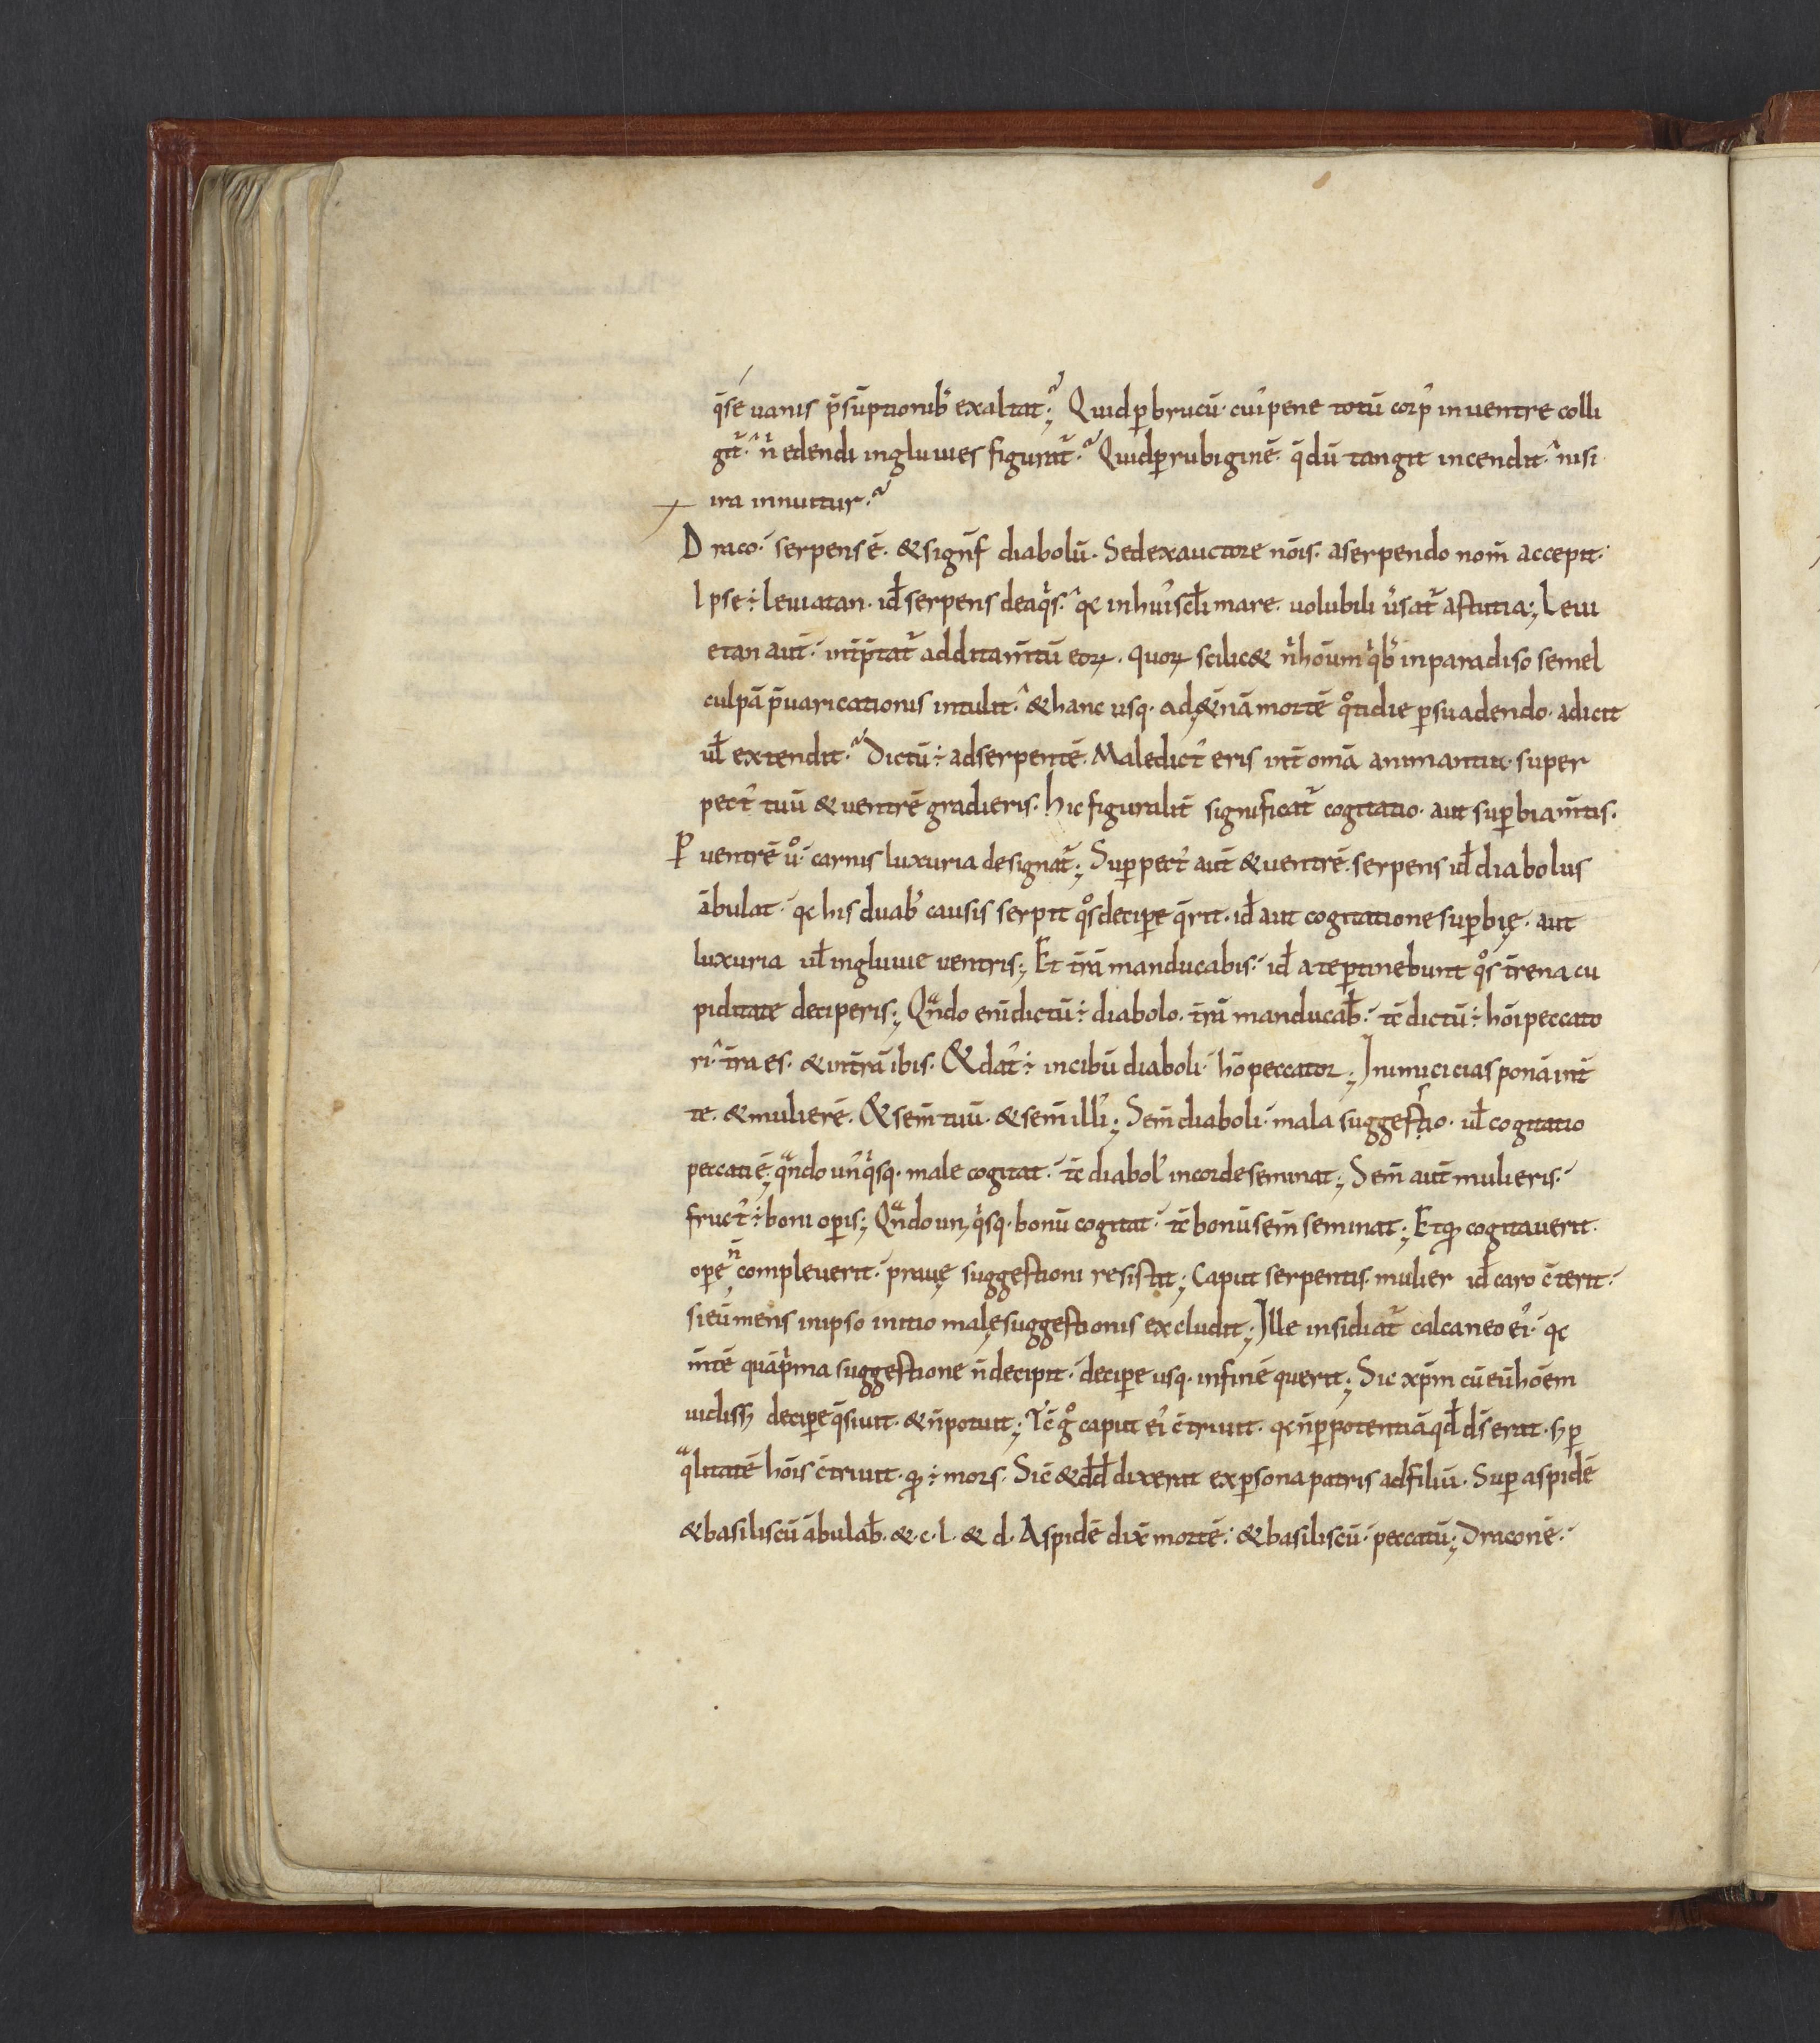 q̄ se uanis p̄sūptionib; exaltat᷑; Quid ꝑ brucū· cui᾿ pene totū corp᾿ in uentre colli
git᷑· n̊ edendi ingluuies figurat᷑· Quid ꝑ rubiginē· q̄ dū tangit incendit· nisi
ira innuitur·
Draco· serpens ē· & signif̄ diabolū· Sed ex auctore nōis· a serpendo nom̄ accepit·
Ipse ÷ leuiatan· id ̵ serpens de aqͥs· qꝫ in hui᾿ scłi mare· uolubili ūsat᷑ astutia; Leui
etan aut̄· int̄p̄tat᷑ additam̄tū eoꝝ· quoꝝ scilic& n̊ hoūm qͥb; in paradiso semel
culpā p̄uaricationis intulit· & hanc usq· ad ę&nā mortē qͦtidie ꝑsuadendo· adicit
uł extendit· Dictū ÷ ad serpentē· Maledict᾿ eris int̄ om̄a animantia· super
pect᾿ tuū & uentrē gradieris· hic figuralit̄ significat᷑ cogitatio· aut suꝑbia m̄tis·
Ꝑ uentrē uͦ· carnis luxuria designat᷑; Suꝑ pect᾿ aut̄ & uentrē· serpens id ̵ diabolus
ābulat· qꝫ his duab; causis serpit qͦs deciꝑe q̄rit· id ̵ aut cogitatione suꝑbię· aut
luxuria uł ingluuie uentris; Et t̄rā manducabis· id ̵ a te ꝑtinebunt qͦs t̄rena cu
piditate deciperis; Qᷓndo eni dictū ÷ diabolo· t̄rā manducab̵· tc̄ dictū ÷ hōi peccato
ri· t̄ra es· & in t̄rā ibis· & dat᾿ ÷ in cibū diaboli· hō peccator; Inimicicias ponā int̄
te· & mulierē· & sem̄ tuū· & sem̄ illi᾿; Sem̄ diaboli· mala suggestio· uł cogitatio
peccati ē; qᷓndo un᾿qͥsq· male cogitat· tc̄ diabol᾿ in corde seminat; Sem̄ aut̄ mulieris·
fruct᾿ ÷ boni oꝑis; Qᷓndo un᾿qͥsq· bonū cogitat· tc̄ bonū sem̄ seminat; Et ꝙ cogitauerit·
oꝑe n̄ compleuerit· prauę suggestioni resistit; Caput serpentis· mulier id ̵ caro c̄terit·
si eū mens in ipso initio malę suggestionis excludit; Ille insidiat᷑ calcaneo ei᾿· qꝫ
m̄tē quā pͥma suggestione n̄ decipit· deciꝑe usq· in finē querit; Sic xp̄m cū eū hōem
uidiss; deciꝑe q̄siuit· & n̄ potuit; Tc̄ gͦ caput ei᾿ c̄triuit· qꝫ n̄ ꝑ potentiā qd ̵ ds̄ erat· s; ꝑ
qᷓlitatē hōis c̄triuit· ꝙ ÷ mors· Sic & dd ̵ dixerat ex ꝑsona patris ad filiū· Suꝑ aspidē
& basiliscū ābulab̵· & c· l· & d· Aspidē dix̄ mortē· & basiliscū· peccatū; Draconē·